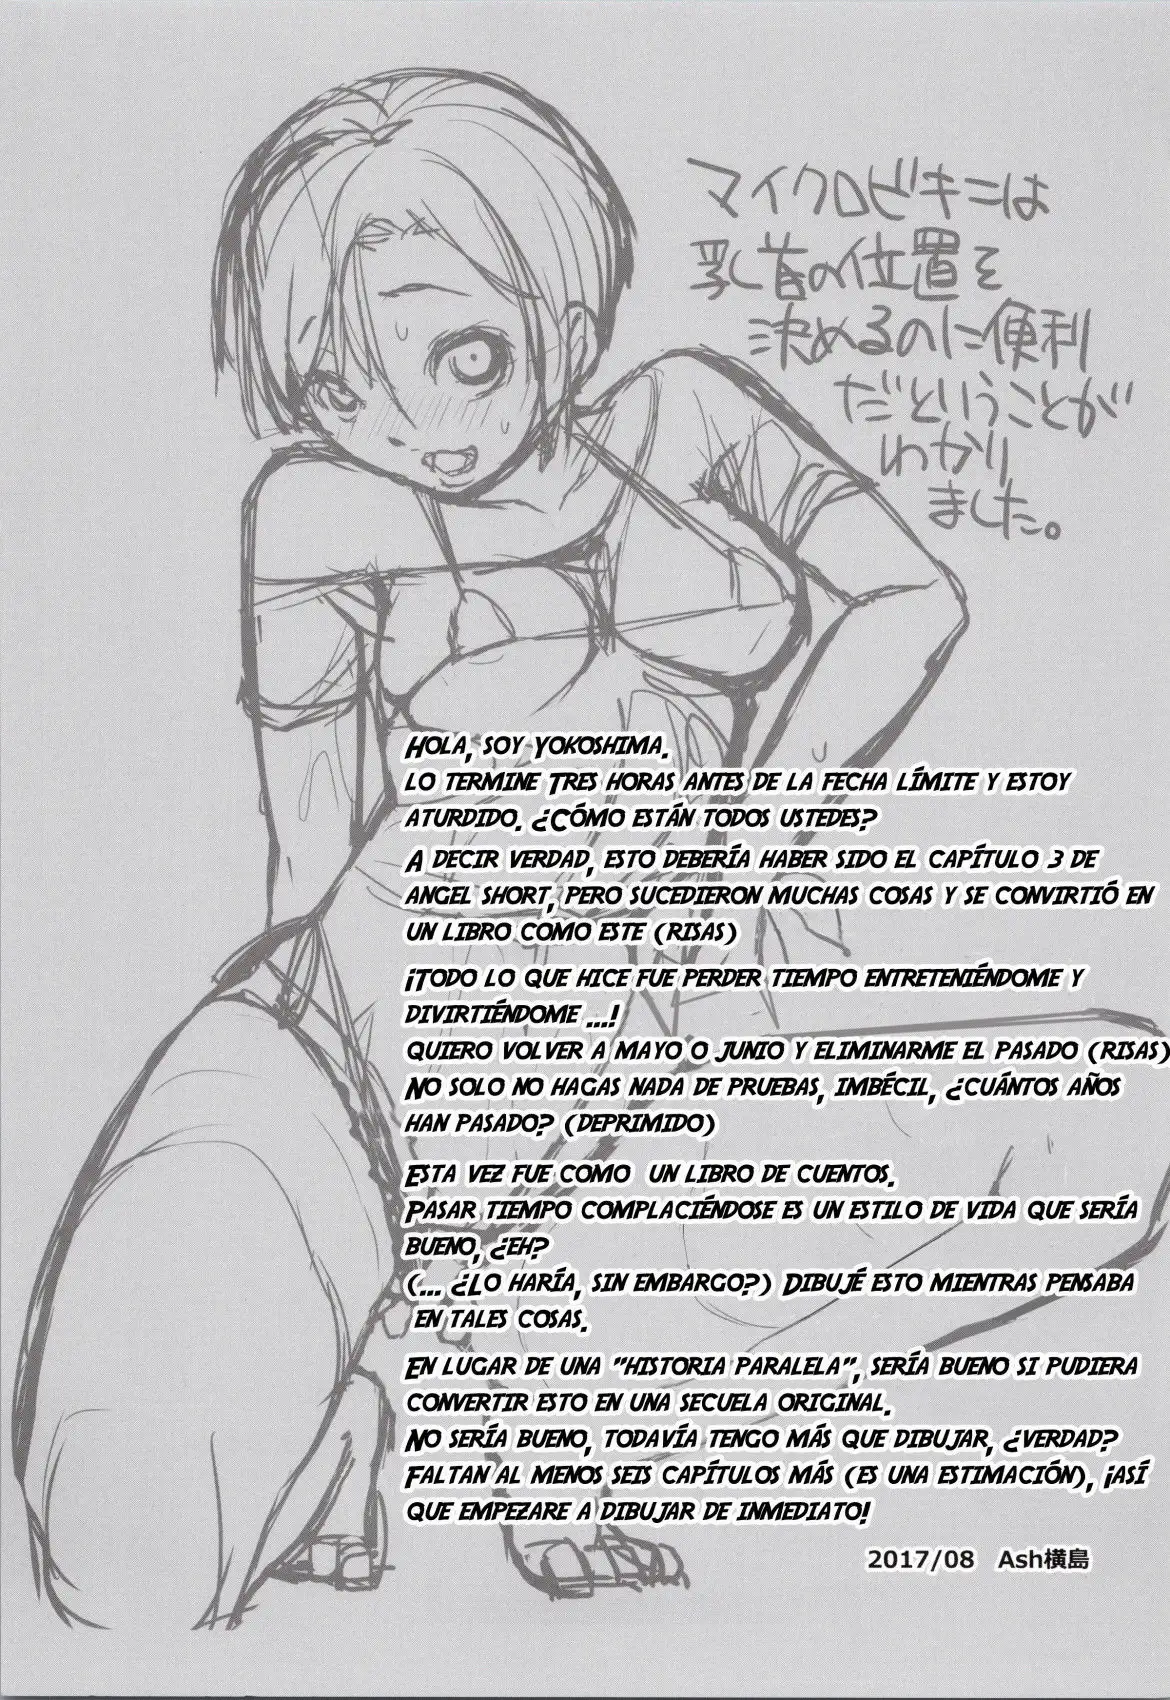 マイクロビキニは
乳首の位置を
決めるのに便利
だということが
わかり
ました。
HOLA, SOY YOKOSHIMA.
LO TERMINE TRES HORAS ANTES DE LA FECHA LÍMITE Y ESTOY
ATURDIDO. ¿CÓMO ESTÁN TODOS USTEDES?
A DECIR VERDAD, ESTO DEBERÍA HABER SIDO EL CAPÍTULO 3 DE
ANGEL SHORT, PERO SUCEDIERON MUCHAS COSAS Y SE CONVIRTIÓ EN
UN LIBRO COMO ESTE (RISAS)
¡TODO LO QUE HICE FUE PERDER TIEMPO ENTRETENIÉNDOME Y
DIVIRTIÉNDOME ...!
QUIERO VOLVER A MAYO O JUNIO Y ELIMINARME EL PASADO (RISAS)
NO SOLO NO HAGAS NADA DE PRUEBAS, IMBÉCIL, ¿CUÁNTOS AÑOS
HAN PASADO? (DEPRIMIDO)
ESTA VEZ FUE COMO UN LIBRO DE CUENTOS.
PASAR TIEMPO COMPLACIÉNDOSE ES UN ESTILO DE VIDA QUE SERÍA
BUENO, ¿EH?
(... ¿LO HARÍA, SIN EMBARGO?) DIBUJÉ ESTO MIENTRAS PENSABA
EN TALES COSAS.
EN LUGAR DE UNA "HISTORIA PARALELA", SERÍA BUENO SI PUDIERA
CONVERTIR ESTO EN UNA SECUELA ORIGINAL.
NO SERÍA BUENO, TODAVÍA TENGO MÁS QUE DIBUJAR, ¿VERDAD?
FALTAN AL MENOS SEIS CAPÍTULOS MÁS (ES UNA ESTIMACIÓN), ¡ASÍ
QUE EMPEZARE A DIBUJAR DE INMEDIATO!
2017/08 Ash横島